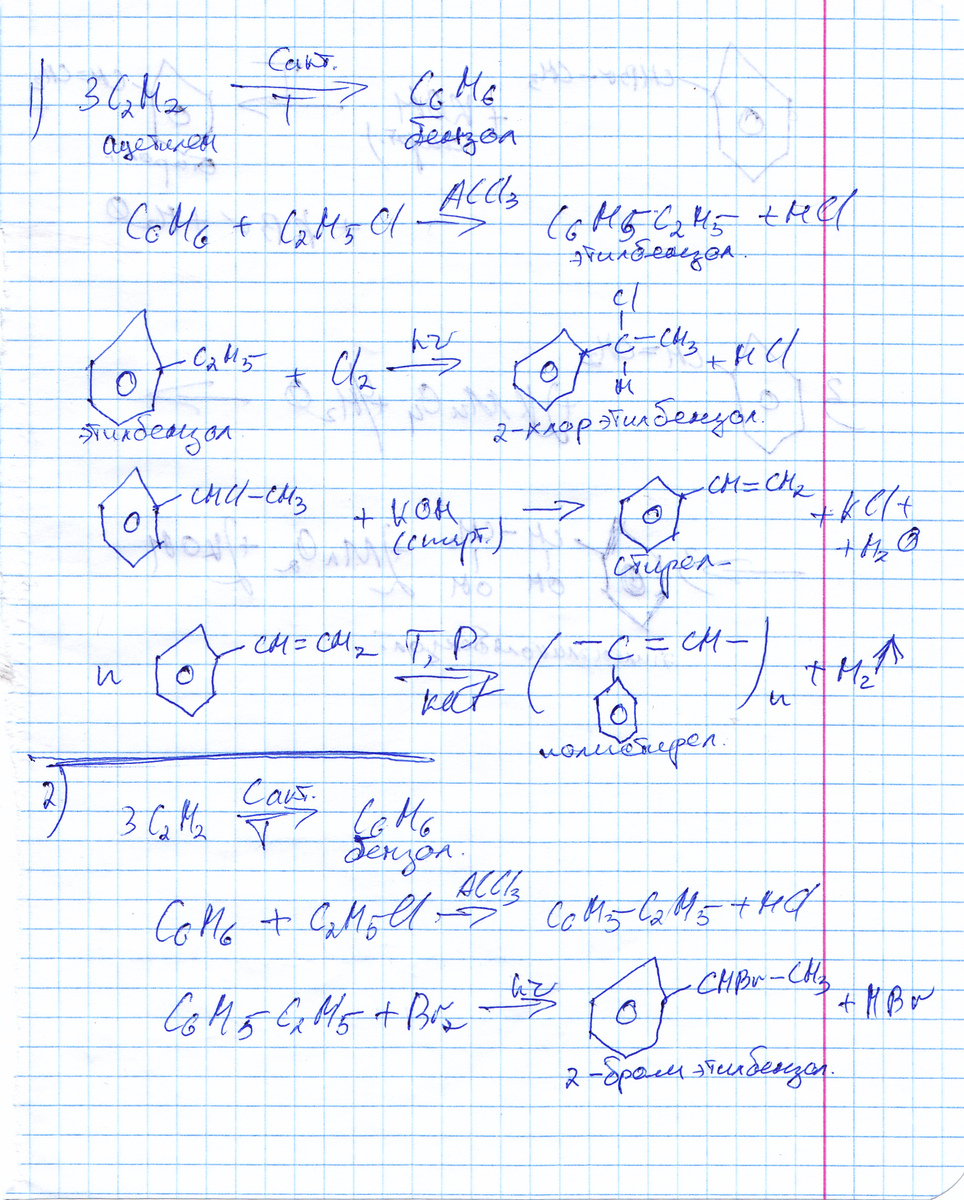 1) 3C₂H₂ —Cакт., T→ C₆H₆
ацетилен бензол
C₆H₆ + C₂H₅Cl —AlCl₃→ C₆H₅C₂H₅ + HCl
этилбензол.
Cl
—C₂H₅ + Cl₂ —hν→ —C—CH₃ + HCl
H
этилбензол 2-хлор этилбензол.
—CHCl—CH₃ + KOH (спирт.) → —CH=CH₂ + KCl +
+ H₂O
стирол
n —CH=CH₂ —T, P, kat→ (—C=CH—)n + H₂↑
полистирол.
2) 3C₂H₂ —Cакт., T→ C₆H₆
бензол.
C₆H₆ + C₂H₅Cl —AlCl₃→ C₆H₅C₂H₅ + HCl
C₆H₅C₂H₅ + Br₂ —hν→ —CHBr—CH₃ + HBr
2-бром этилбензол.